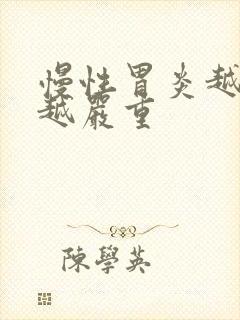 慢性胃炎越
越嚴重
陳學英